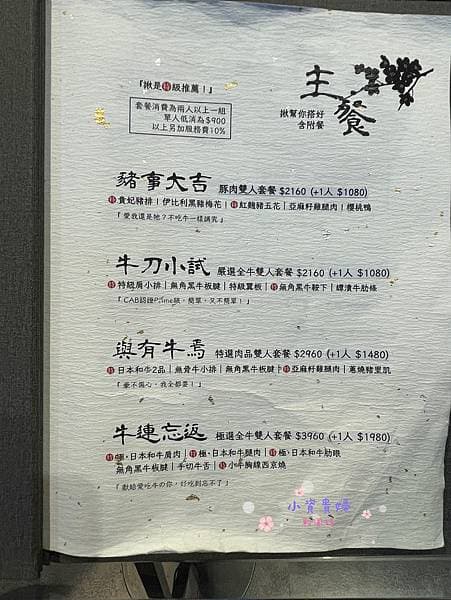 『揪是特級推薦！』
套餐消費為兩人以上一組
單人低消為$900
以上另加服務費10%
主餐
揪幫你搭好
含附餐
豬事大吉 豚肉雙人套餐 $2160 (+1人 $1080)
特貴妃豬排｜伊比利黑豬梅花｜特紅麴豬五花｜亞麻籽雞腿肉｜櫻桃鴨
『愛我還是牠？不吃牛一樣講究』
牛刀小試 嚴選全牛雙人套餐 $2160 (+1人 $1080)
特特級肩小排｜無角黑牛板腱｜特級翼板｜特無角黑牛鞍下｜嫩漬牛肋條
『CAB認證Prime級，簡單，又不簡單！』
與有牛焉 特選肉品雙人套餐 $2960 (+1人 $1480)
特日本和牛2品｜無骨牛小排｜無角黑牛板腱｜特亞麻籽雞腿肉｜蔥燒豬里肌
『葷不偏心，我全都要！』
牛連忘返 極選全牛雙人套餐 $3960 (+1人 $1980)
特極•日本和牛肩肉｜特極•日本和牛腿肉｜特極•日本和牛肋眼
無角黑牛板腱｜手切牛舌｜特小牛胸線西京燒
『獻給愛吃牛の你，好吃到忘不了』
小資貴婦